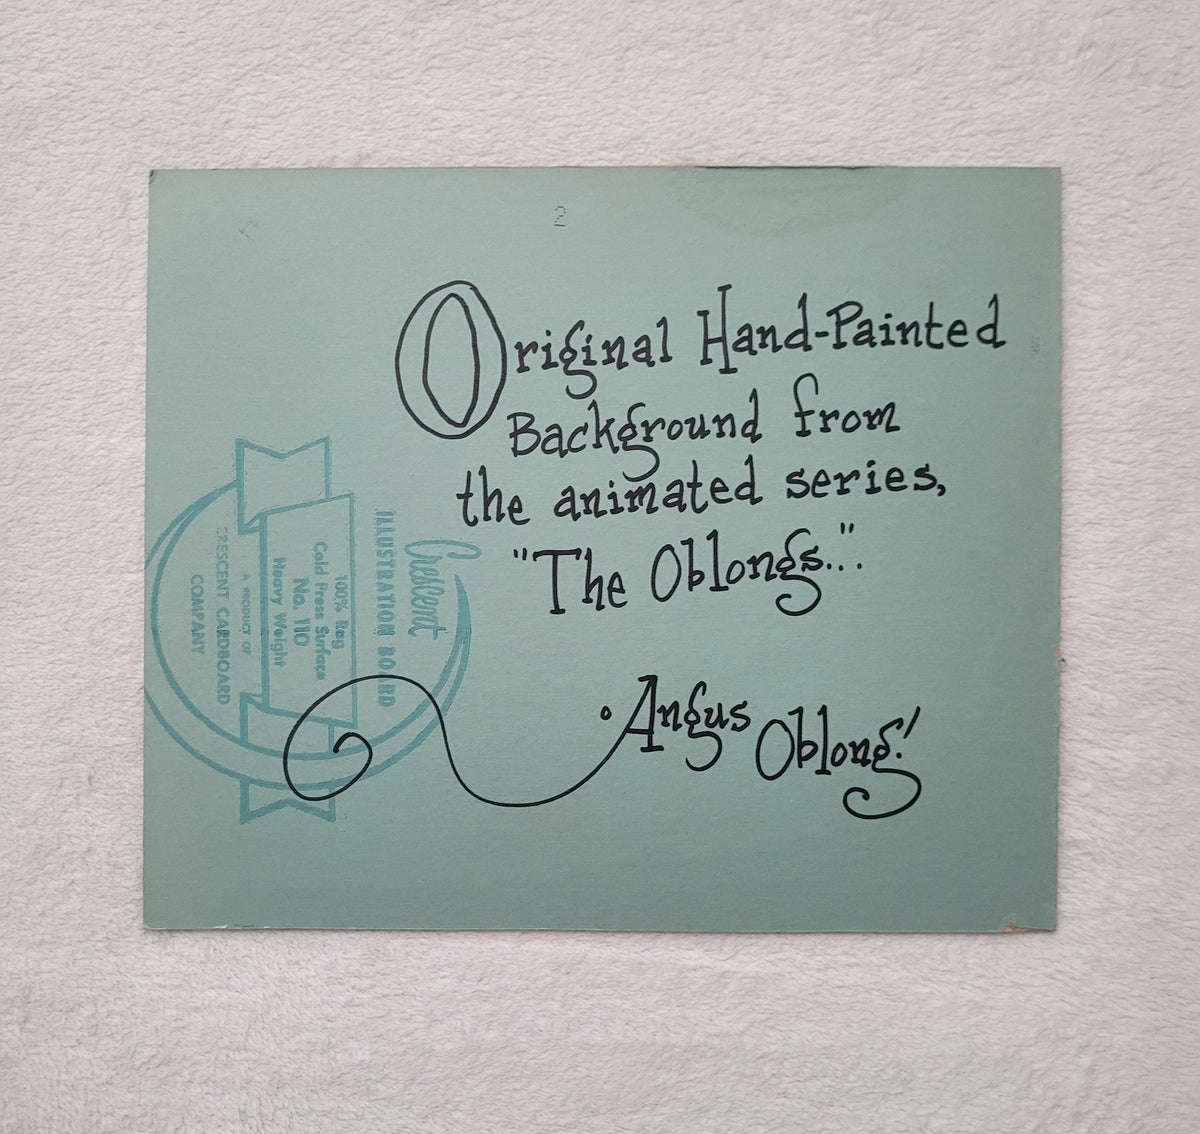 2
Original Hand-Painted
Background from
the animated series,
"The Oblongs..."
Angus Oblong!
Crescent
ILLUSTRATION BOARD
100% Rag
Cold Press Surface
No. 110
Heavy Weight
A PRODUCT OF
CRESCENT CARDBOARD
COMPANY